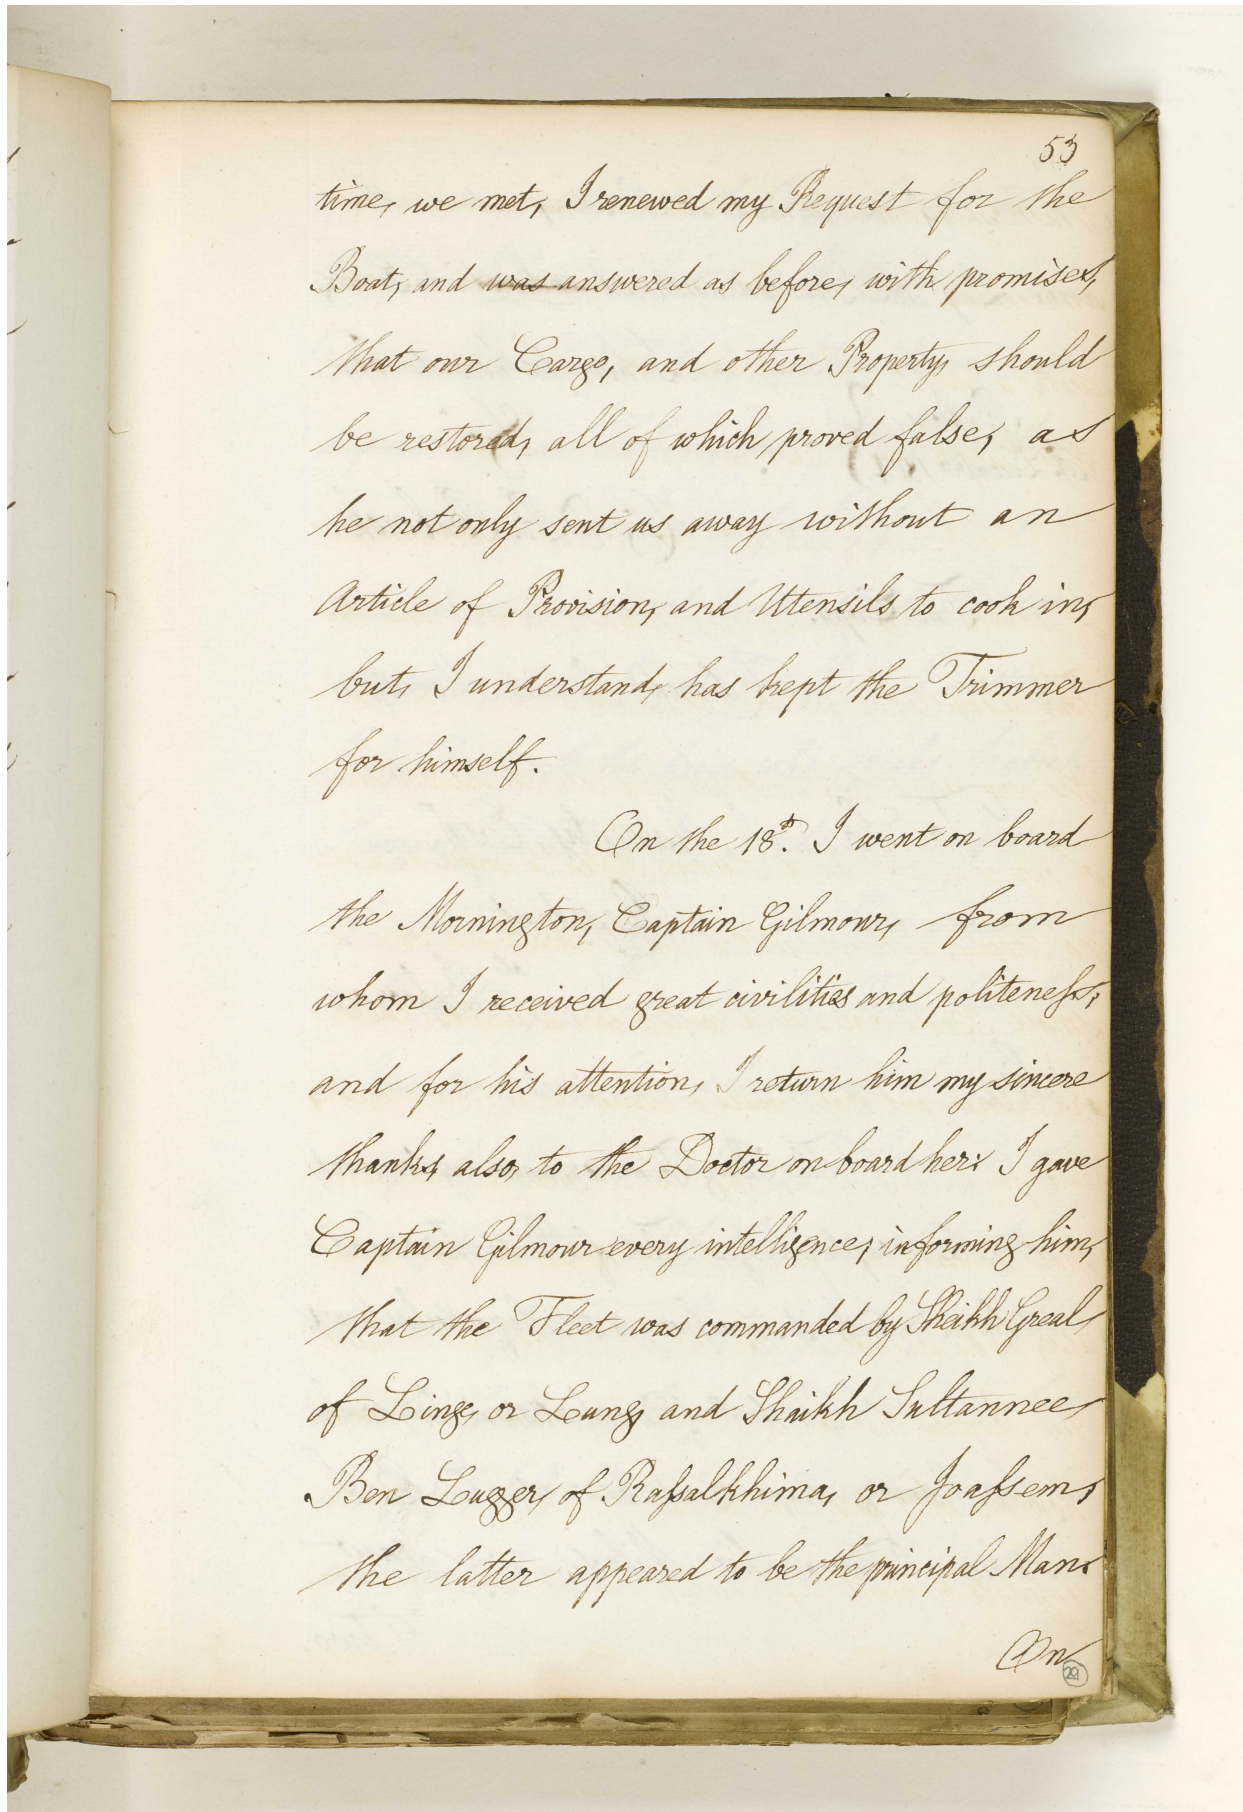 53
time, we met, I renewed my Request for the
Boat, and was answered as before, with promises,
that our Cargo, and other Property, should
be restored, all of which proved false, as
he not only sent us away without an
Article of Provision, and Utensils to cook in,
but, I understand, has kept the Trimmer
for himself.
On the 18th. I went on board
the Mornington, Captain Gilmour, from
whom I received great civilities and politeneſs;
and for his attention, I return him my sincere
thanks, also, to the Doctor on board her: I gave
Captain Gilmour every intelligence, informing him,
that the Fleet was commanded by Sheikh Greal,
of Linge, or Lung, and Shaikh Sultannee
Ben Lugger, of Raſsalkhima, or Joaſsem,
the latter appeared to be the principal Man.
On
29